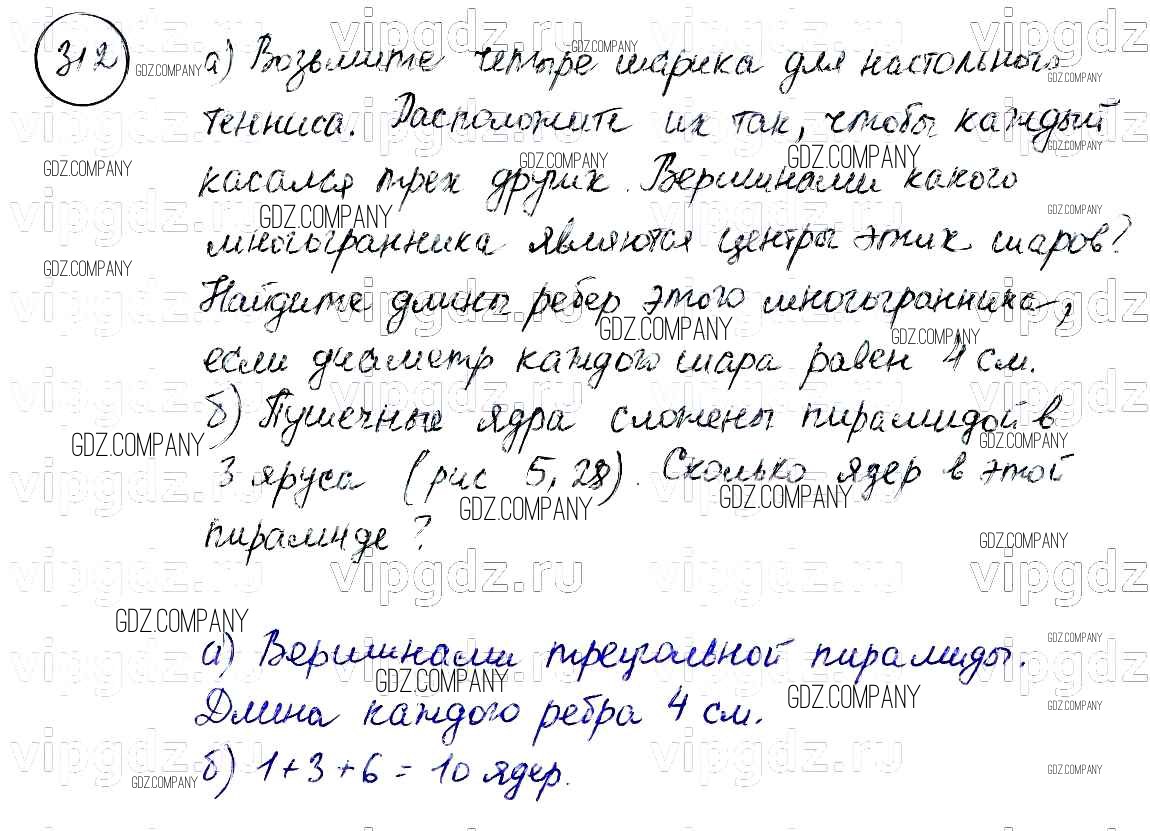 312
а) Возьмите четыре шарика для настольного
тенниса. Расположите их так, чтобы каждый
касался трех других. Вершинами какого
многогранника являются центры этих шаров?
Найдите длины ребер этого многогранника,
если диаметр каждого шара равен 4 см.
б) Пушечные ядра сложены пирамидой в
3 яруса (рис 5,28). Сколько ядер в этой
пирамиде?
а) Вершинами треугольной пирамиды.
Длина каждого ребра 4 см.
б) 1+3+6=10 ядер.
vipgdz.ru
GDZ.COMPANY